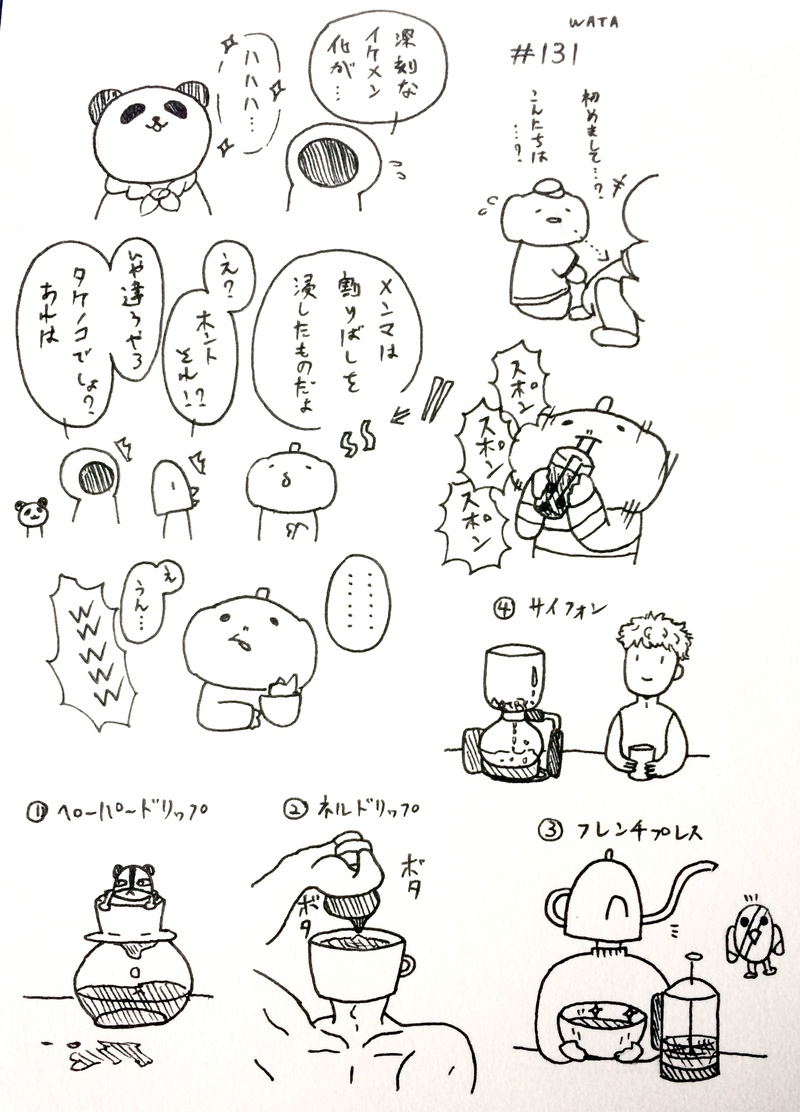 WATA
#131
初めまして…?
こんにちは
…?
深刻な
イケメン
化が…
ハハハ…
メンマは
割りばしを
浸したものだよ
え?
ホント
それ!?
いや違うやろ
タケノコでしょ?
あれは
スポン
スポン
スポン
……
え
うん…
wwwww
④サイフォン
①ペーパードリップ
②ネルドリップ
ボタ
ボタ
③フレンチプレス